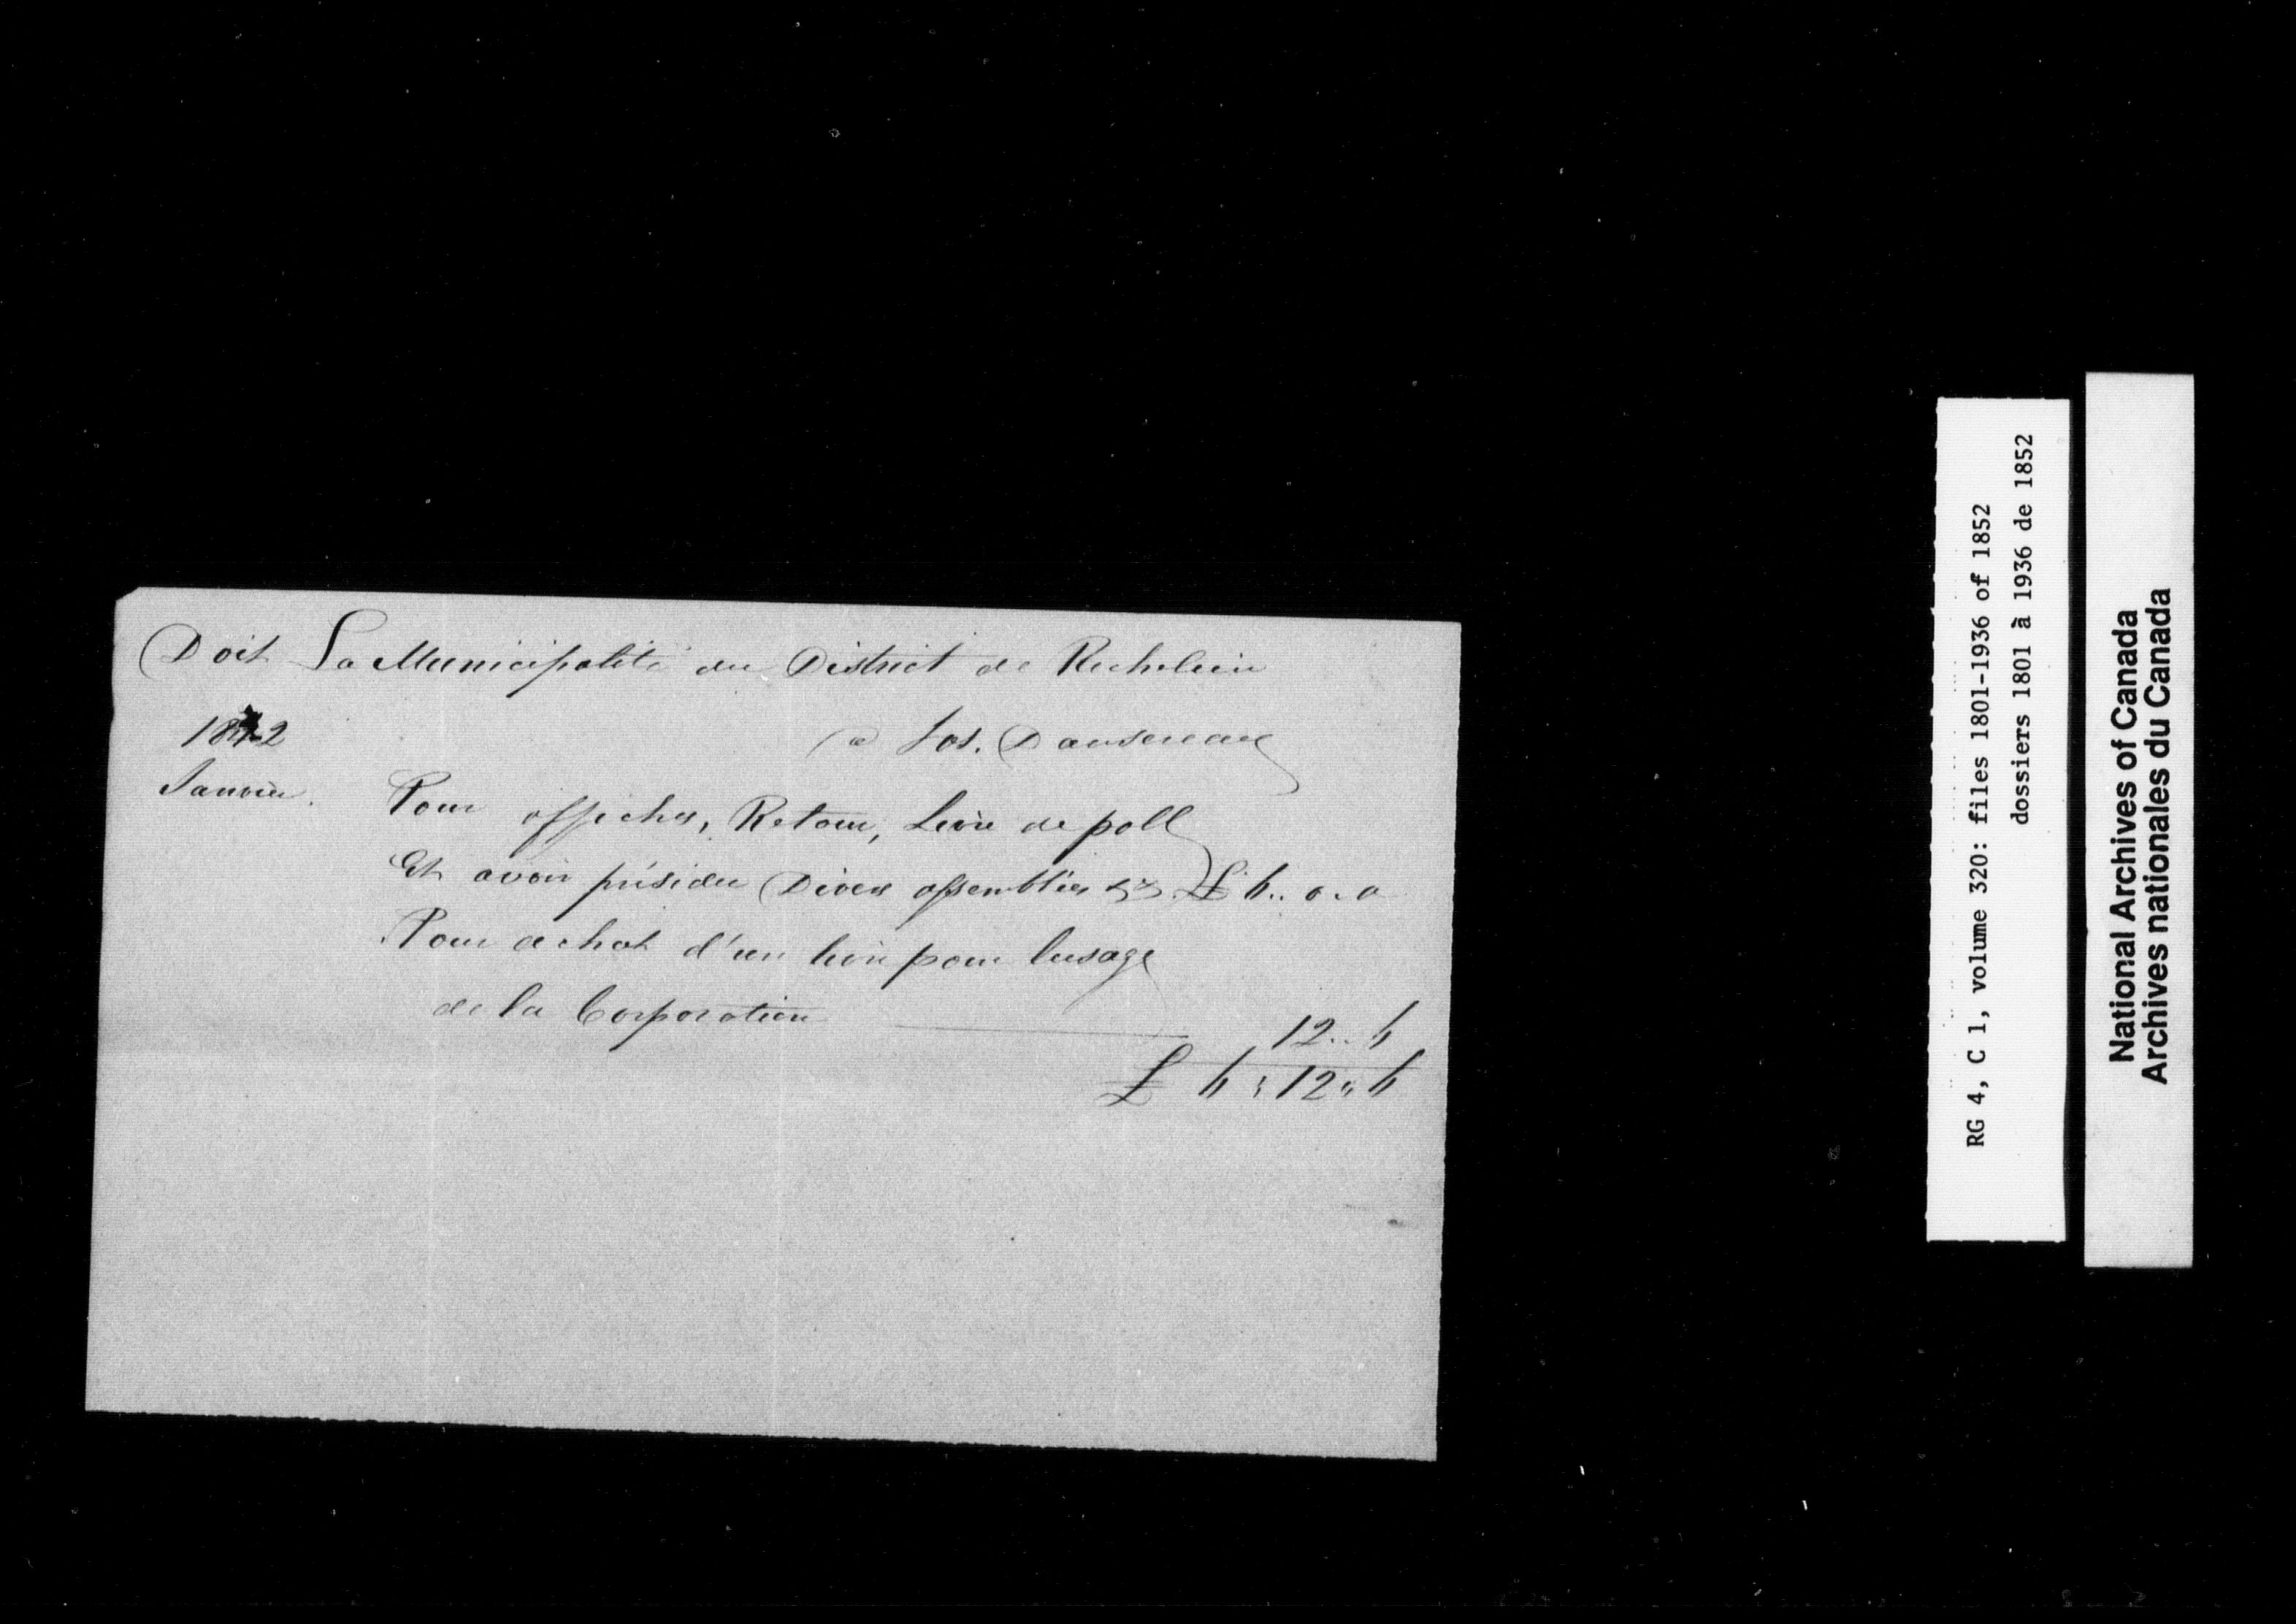 Doit La Municipalité du District de Richelieu
1842
à Jos. Dansereau
Janvier.
Pour affiches, Retour, Livre de poll
Et avoir présidu Divers assemblées &c £ 6.. 0.. 0
Pour achat d'un livre pour lusage
de la Corporation 12.. 6
£ 6 ,, 12 ,, 6
RG 4, C 1, volume 320: files 1801-1936 of 1852
dossiers 1801 à 1936 de 1852
National Archives of Canada
Archives nationales du Canada